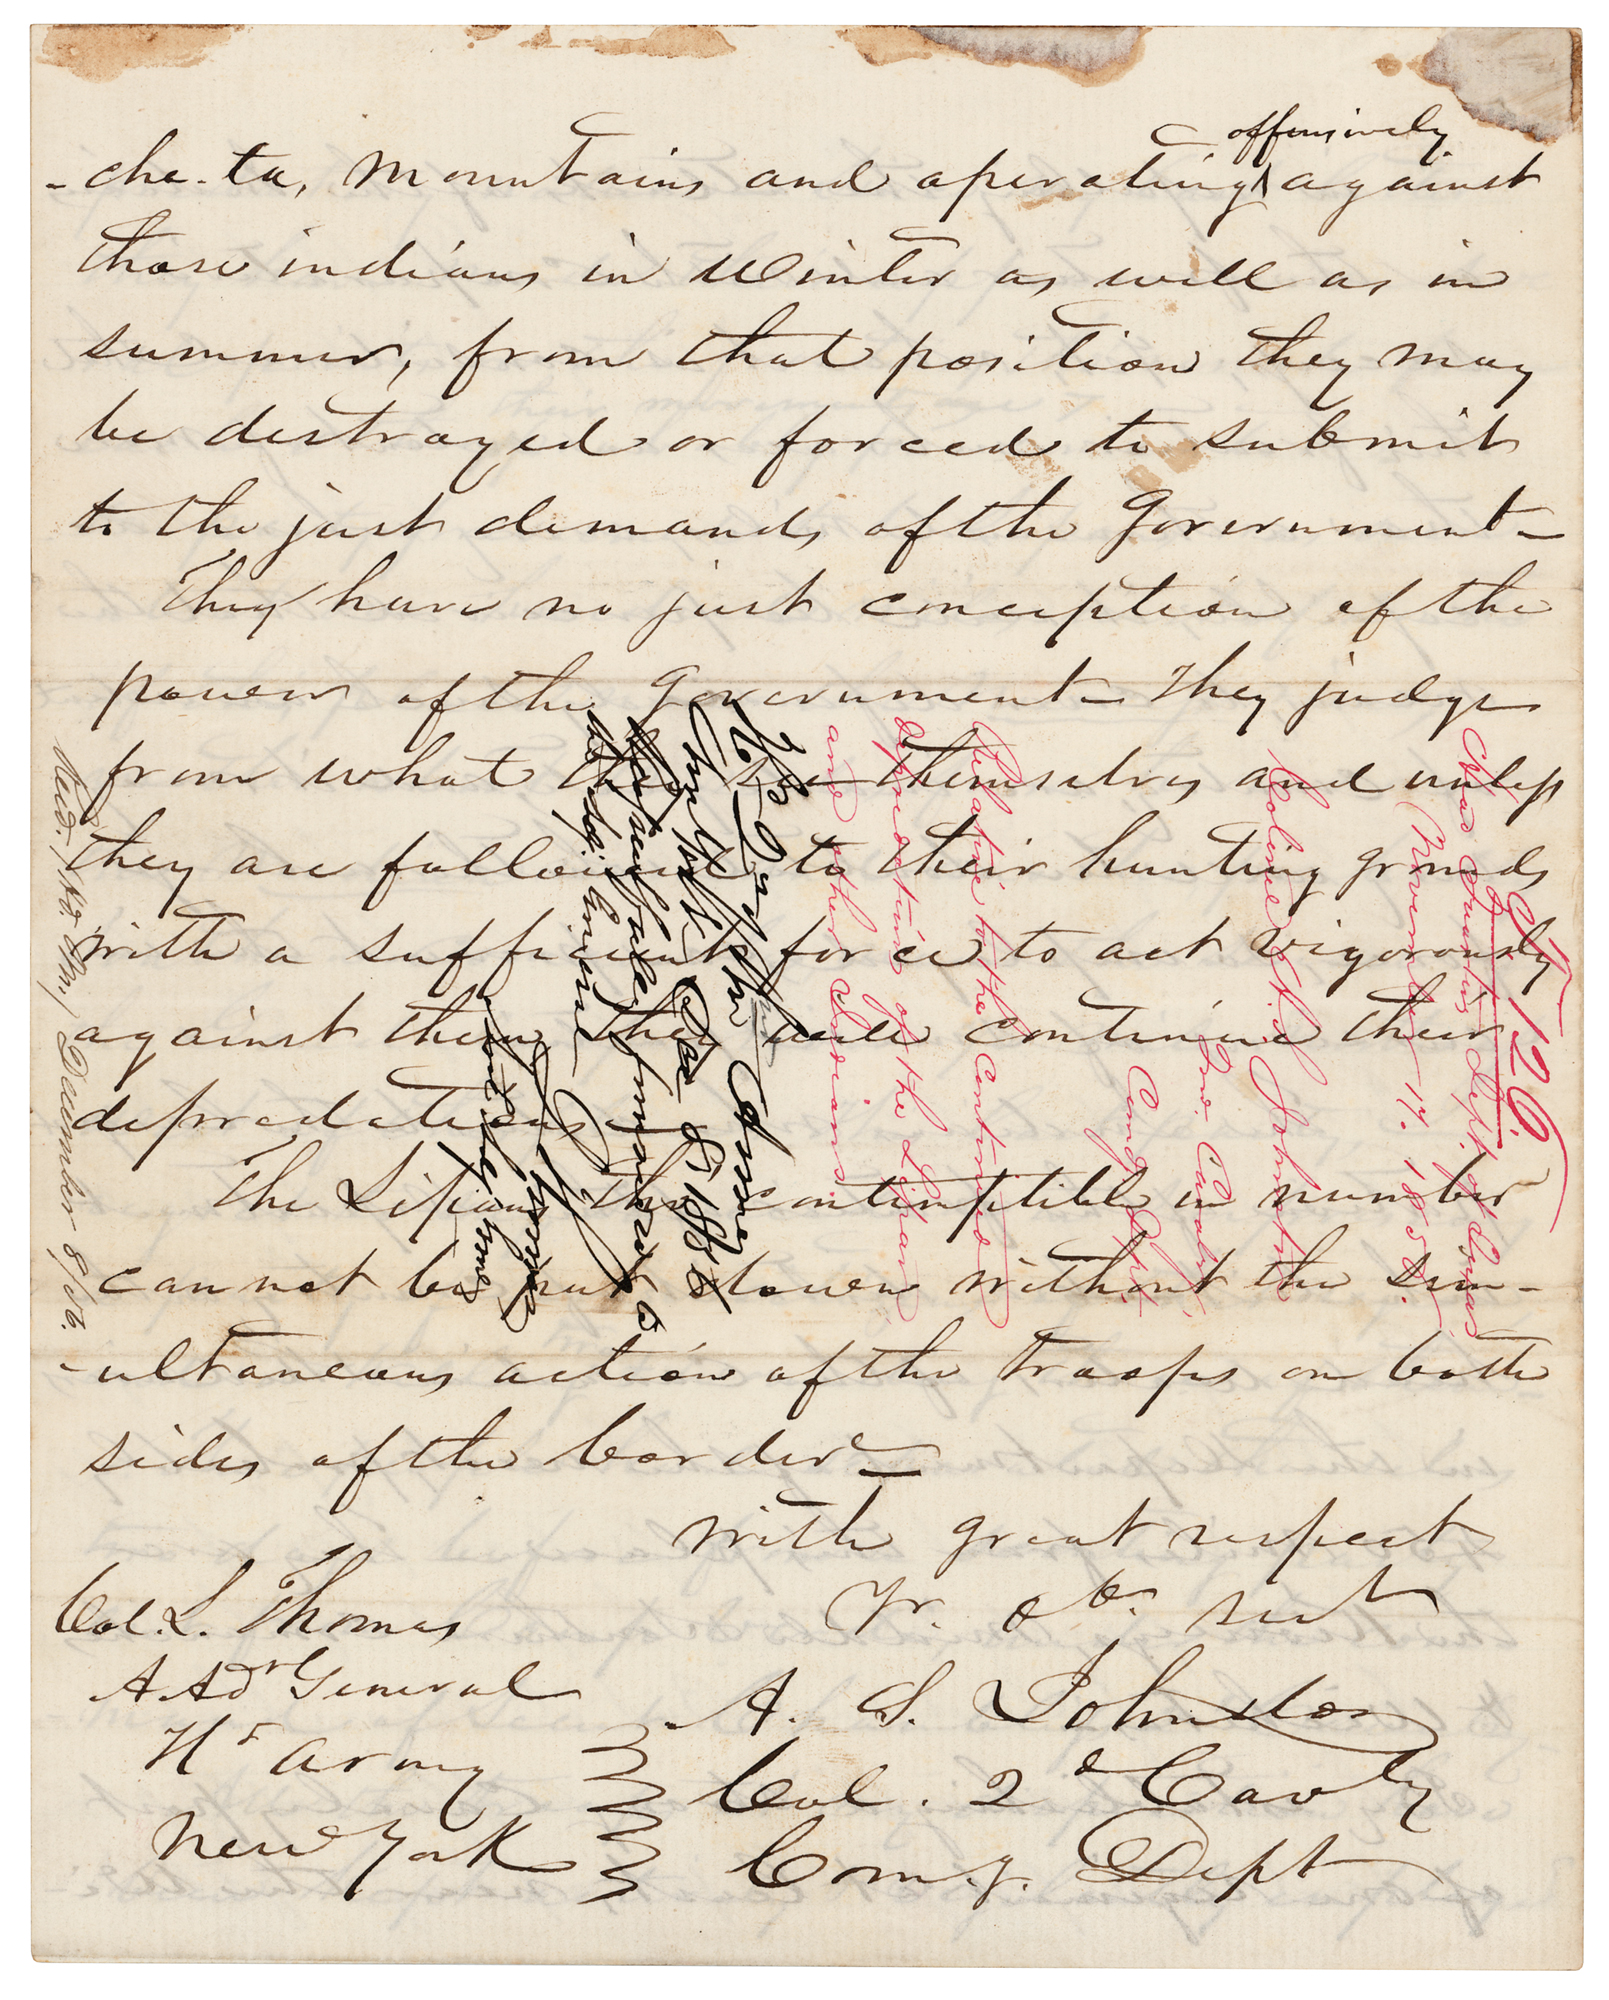 -che-ta, Mountains and operating offensively against
those indians in Winter as well as in
summer, from that position they may
be destroyed or forced to submit
to the just demands of the Government—
They have no just conception of the
power of the Government— They judge
from what they see themselves and unless
they are followed to their hunting grounds
with a sufficient force to act vigorously
against them they will continue their
depredations
The Lipans tho contemptible in number
cannot be put down without the sim-
-ultaneous action of the troops on both
sides of the border—
With great respect
Yr. obt. svt
A. S. Johnston
Col. 2d Cavly
Comg. Dept
Col. L. Thomas
A. Adr General
Hr Army
New York
Recd. Hd. Qrs., December 8/56.
Head Qrs of the Army
New York Dec 8 1856
Respectfully forwarded to
T. 126.
Head Quarters Dept. of Texas
November 17. 1856.
Johnston
2nd Cavalry,
Comdg Dept.
Relative to the continued
depredations of the Lipan
and other Indians.